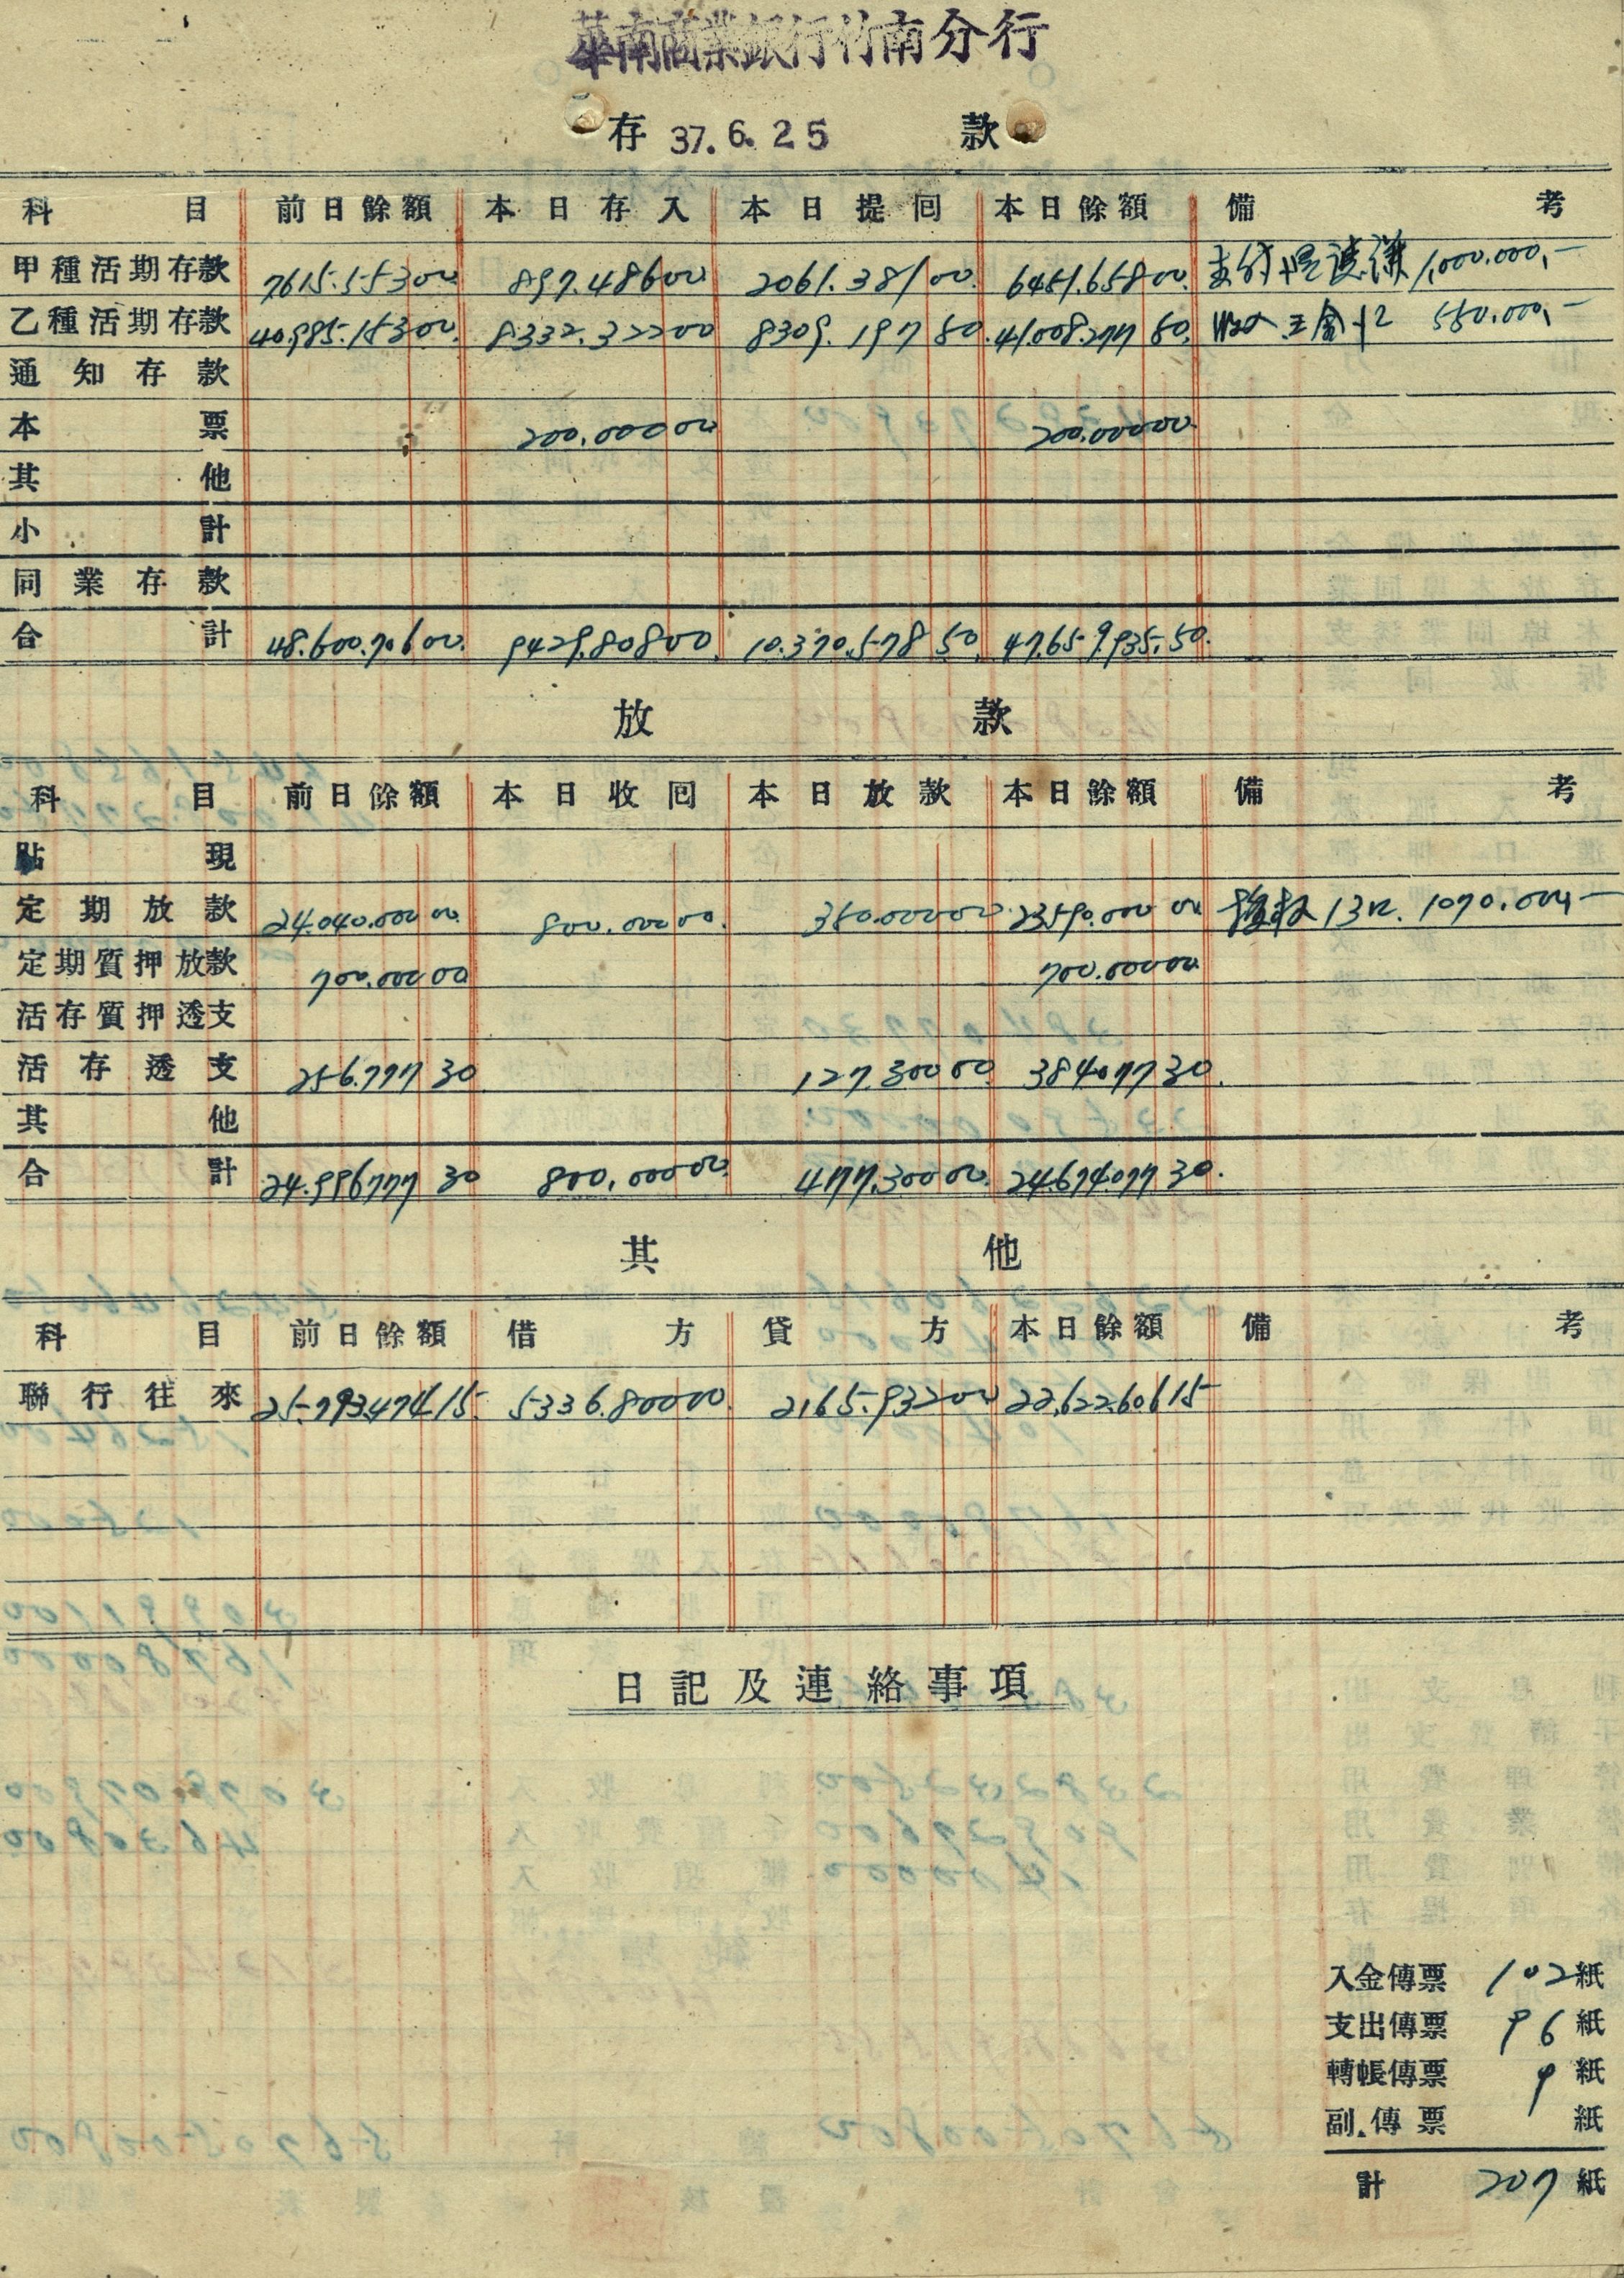 華南商業銀行竹南分行
存 37.6.25 款
科目 前日餘額 本日存入 本日提囘 本日餘額 備考
甲種活期存款 7615.553 00 897.486 00 2061.381 00 6451.658 00 支付 1,000.000,-
乙種活期存款 40.985.153 00 8.332.322 00 8309.197 50 41.008.277 50 收入 550.000,-
通知存款
本票 200.000 00 200.000 00
其他
小計
同業存款
合計 48.600.706 00 9429.808 00 10.370.578 50 47.659.935.50
放款
科目 前日餘額 本日收囘 本日放款 本日餘額 備考
貼現
定期放款 24.040.000 00 800.000 00 350.000 00 23.590.000 00 13口. 1070.000,-
定期質押放款 700.000 00 700.000 00
活存質押透支
活存透支 256.777 30 127.300 00 384.077 30
其他
合計 24.996.777 30 800.000 00 477.300 00 24.674.077 30
其他
科目 前日餘額 借方 貸方 本日餘額 備考
聯行往來 25.793.474.15 5336.800 00 2,165.932 00 22.622.606 15
日記及連絡事項
入金傳票 102紙
支出傳票 96紙
轉帳傳票 9紙
副傳票 紙
計 207紙